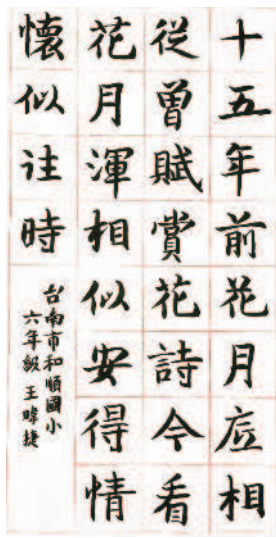 十五年前花月底相
從曾賦賞花詩今看
花月渾相似安得情
懷似往時
台南市和順國小
六年級 王暐捷